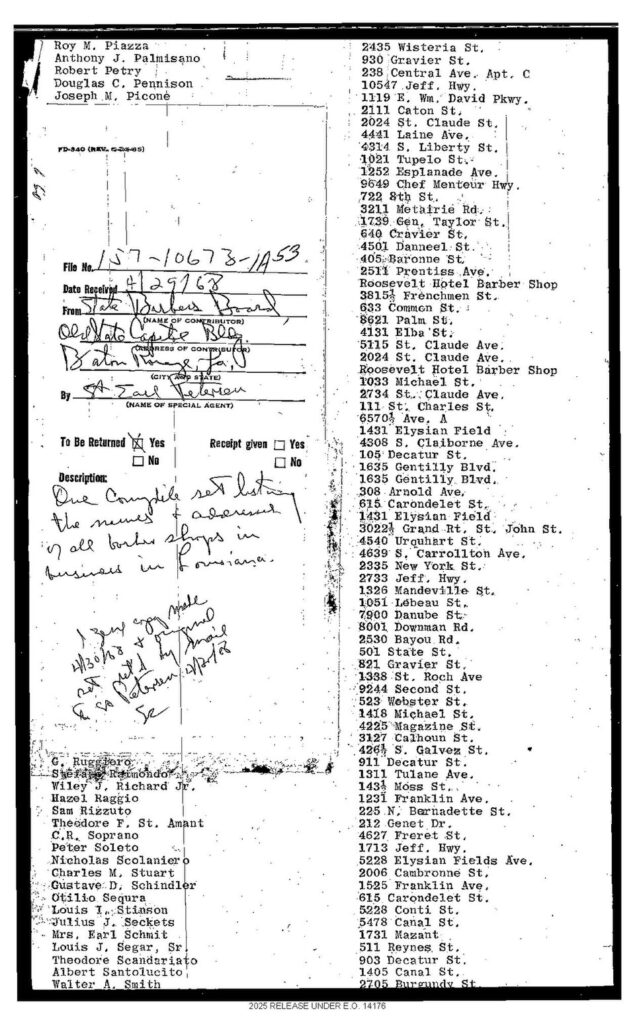 Roy M. Piazza
Anthony J. Palmisano
Robert Petry
Douglas C. Pennison
Joseph M. Picone
FD-340 (REV.
File No. 157-10673-1A53
Date Received 4/29/68
From State Barbers Board,
(NAME OF CONTRIBUTOR)
Old State Capitol Bldg
(ADDRESS OF CONTRIBUTOR)
Baton Rouge, La.
(CITY AND STATE)
By SA Earl Petersen
(NAME OF SPECIAL AGENT)
To Be Returned ☒ Yes Receipt given ☐ Yes
☐ No ☐ No
Description:
One Complete set listing
the names & addresses
of all barber shops in
business in Louisiana.
1 copy made
4/30/68 & original
set ret'd by mail
to SA Petersen
G. Ruggiero
Stefano Raimondo
Wiley J. Richard Jr.
Hazel Raggio
Sam Rizzuto
Theodore F. St. Amant
C.R. Soprano
Peter Soleto
Nicholas Scolaniero
Charles M. Stuart
Gustave D. Schindler
Otilio Sequra
Louis I. Stinson
Julius J. Seckets
Mrs. Earl Schmit
Louis J. Segar, Sr
Theodore Scandariato
Albert Santolucito
Walter A. Smith
2435 Wisteria St.
930 Gravier St.
238 Central Ave. Apt. C
10547 Jeff. Hwy.
1119 E. Wm. David Pkwy.
2111 Caton St.
2024 St. Claude St.
4441 Laine Ave.
4314 S. Liberty St.
1021 Tupelo St.
1252 Esplanade Ave.
9649 Chef Menteur Hwy.
722 8th St.
3211 Metairie Rd.
1739 Gen. Taylor St.
640 Cravier St.
4501 Danneel St.
405 Baronne St.
2511 Prentiss Ave.
Roosevelt Hotel Barber Shop
3815½ Frenchmen St.
633 Common St.
8621 Palm St.
4131 Elba St.
5115 St. Claude Ave.
2024 St. Claude Ave.
Roosevelt Hotel Barber Shop
1033 Michael St.
2734 St. Claude Ave.
111 St. Charles St.
6570½ Ave. A
1431 Elysian Field
4308 S. Claiborne Ave.
105 Decatur St.
1635 Gentilly Blvd.
1635 Gentilly Blvd.
308 Arnold Ave.
615 Carondelet St.
1431 Elysian Field
3022½ Grand Rt. St. John St.
4540 Urquhart St.
4639 S. Carrollton Ave.
2335 New York St.
2733 Jeff. Hwy.
1326 Mandeville St.
1051 Lebeau St.
7900 Danube St.
8001 Downman Rd.
2530 Bayou Rd.
501 State St.
821 Gravier St.
1338 St. Roch Ave
9244 Second St.
523 Webster St.
1418 Michael St.
4225 Magazine St.
3127 Calhoun St.
426½ S. Galvez St.
911 Decatur St.
1311 Tulane Ave.
143½ Moss St.
1231 Franklin Ave.
225 N. Bernadette St.
212 Genet Dr.
4627 Freret St.
1713 Jeff. Hwy.
5228 Elysian Fields Ave.
2006 Cambronne St.
1525 Franklin Ave.
615 Carondelet St.
5228 Conti St.
5478 Canal St.
1731 Mazant
511 Reynes St.
903 Decatur St.
1405 Canal St.
2705 Burgundy St.
2025 RELEASE UNDER E.O. 14176